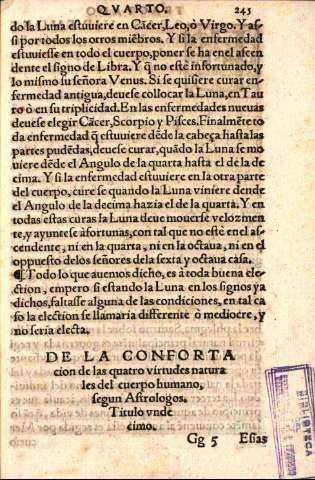 QVARTO. 245
do la Luna estuuiere en Cãcer, Leo, ò Virgo. Y as-
si por todos los otros miẽbros. Y si la enfermedad
estuuiesse en todo el cuerpo, poner se ha en el ascen
dente el signo de Libra. Y q̃ no estè infortunado, y
lo mismo su señora Venus. Si se quisiere curar en-
fermedad antigua, deuese collocar la Luna, en Tau
ro ò en su triplicidad. En las enfermedades nueuas
deuese elegir Cãcer, Scorpio y Pisces. Finalmẽte to
da enfermedad q̃ estuuiere dẽde la cabeça hasta las
partes pudẽdas, deuese curar, quãdo la Luna se mo
uiere dẽde el Angulo de la quarta hasta el de la de
cima. Y si la enfermedad estuuiere en la otra parte
del cuerpo, cure se quando la Luna viniere dende
el Angulo de la decima hazia el de la quarta. Y en
todas estas curas la Luna deue mouerse velozmen
te, y ayuntese à fortunas, con tal que no estè en el as-
cendente, ni en la quarta, ni en la octaua, ni en el
oppuesto de los señores de la sexta y octaua casa.
¶ Todo lo que auemos dicho, es à toda buena ele-
ction, empero si estando la Luna en los signos ya
dichos, faltasse alguna de las condiciones, en tal ca
so la election se llamaria differente ò mediocre, y
no seria electa.
DE LA CONFORTA
cion de las quatro virtudes natura
les del cuerpo humano,
segun Astrologos.
Titulo vnde
cimo.
Gg 5 Estas
BIBLIOTECA